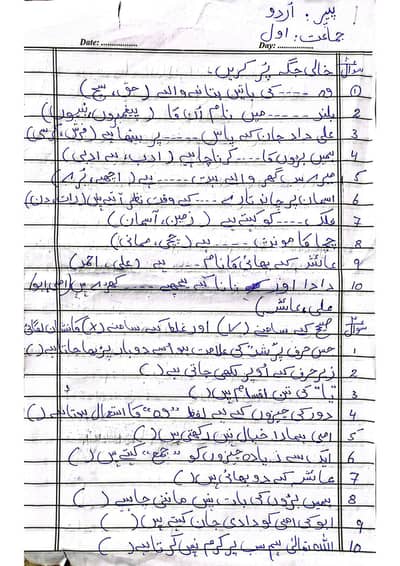 پیپر: اُردو
جماعت: اول
Date: ................ Day: ................
سوال ١ خالی جگہ پُر کریں۔
① وہ ---- کی باتیں بتانے والے (حق، سچ)
2 بلند ---- میں نام اُن کا (پیغمبروں، نبیوں)
3 علی دادا جان کے پاس ---- پر بیٹھا ہے (فرش، کرسی)
4 ہمیں بڑوں کا ---- کرنا چاہیے (ادب، بے ادبی)
5 میرے سب گھر والے بہت ---- ہے (اچھے، بُرے)
6 آسمان پر چاند تارے ---- کے وقت نظر آتے ہیں (رات، دن)
7 فلک ---- کو کہتے ہے (زمین، آسمان)
8 چچا کا مونث ---- ہے (چچی، ممانی)
9 عائشہ کے بھائی کا نام ---- ہے (علی، احمد)
10 دادا اور نانا کے پیچھے ---- کھڑے ہیں (امی ابو،
علی، عائشہ)
سوال ٢ صحیح کے سامنے (✓) اور غلط کے سامنے (×) کا نشان لگائیں
1 جس حرف پر شد کی علامت ہو اسے دو بار پڑھا جاتا ہے ( )
2 زیر حرف کے اُوپر لکھی جاتی ہے ( )
3 کی تین اقسام ہیں ( )
4 دور کی چیزوں کے لیے لفظ "وہ" کا استعمال ہوتا ہے ( )
5 امی ہمارا خیال نہیں رکھتی ہیں ( )
6 ایک سے زیادہ چیزوں کو "جمع" کہتے ہیں ( )
7 عائشہ کے دو بھائی ہیں ( )
8 ہمیں بڑوں کی بات نہیں ماننی چاہیے ( )
9 ابو کی امی کو دادی جان کہتے ہیں ( )
10 اللہ تعالیٰ ہم سب پر کرم نہیں کرتا ہے ( )